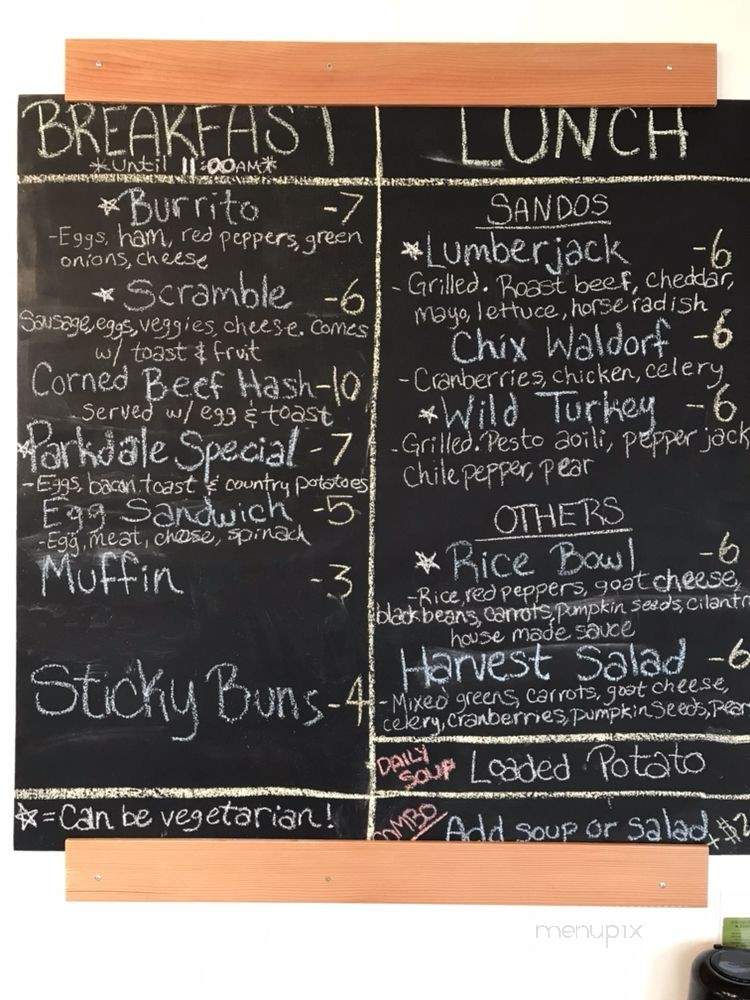 BREAKFAST
*until 11:00AM*
☆Burrito -7
-Eggs, ham, red peppers, green
onions, cheese
☆Scramble -6
Sausage, eggs, veggies, cheese. Comes
w/ toast & fruit
Corned Beef Hash-10
Served w/ egg & toast
☆Parkdale Special -7
-Eggs, bacon toast & country potatoes
Egg Sandwich -5
-Egg, meat, cheese, spinach
Muffin -3
Sticky Buns-4
☆=Can be vegetarian!
LUNCH
SANDOS
☆Lumberjack -6
-Grilled. Roast beef, cheddar,
mayo, lettuce, horseradish
Chix Waldorf -6
-Cranberries, chicken, celery
☆Wild Turkey -6
-Grilled. Pesto aoili, pepper jack
Chile pepper, pear
OTHERS
☆Rice Bowl -6
-Rice, red peppers, goat cheese,
black beans, carrots, pumpkin seeds, cilantro
house made sauce
Harvest Salad -6
-Mixed greens, carrots, goat cheese,
celery, cranberries, pumpkin seeds, pear
DAILY
SOUP
Loaded Potato
Add soup or salad +$2
menupix